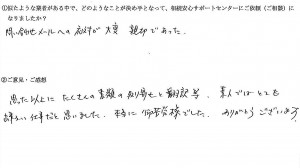 ①似たような業者がある中で、どのようなことが決め手となって、相続安心サポートセンターにご依頼（ご相談）に
なりましたか？
問い合わせメールへの応対が大変 親切であった。
②ご意見・ご感想
思った以上に たくさんの書類の取り寄せと翻訳等、素人ではとても
出来ない仕事だと思いました。本当に ご苦労様でした。ありがとうございます。